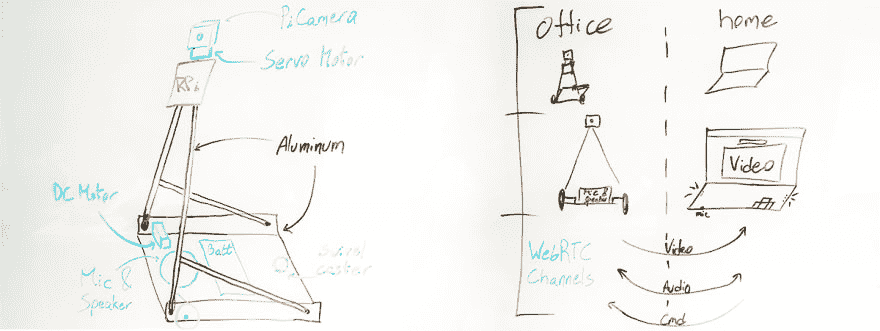 PiCamera
Servo Motor
RPi
Aluminum
DC Motor
Batt
Swivel
caster
Mic &
Speaker
office
home
Mic &
Speaker
Video
mic
WebRTC
Channels
Video
Audio
Cmd